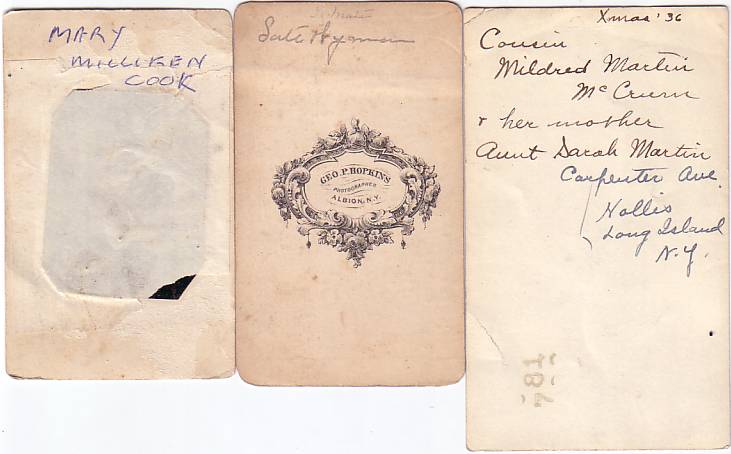 MARY
MILLIKEN
COOK
Wyman
GEO. P. HOPKINS
PHOTOGRAPHER
ALBION, N.Y.
Xmas '36
Cousin
Mildred Martin
McCrum
& her mother
Aunt Sarah Martin
Carpenter Ave.
Hollis
Long Island
N.Y.